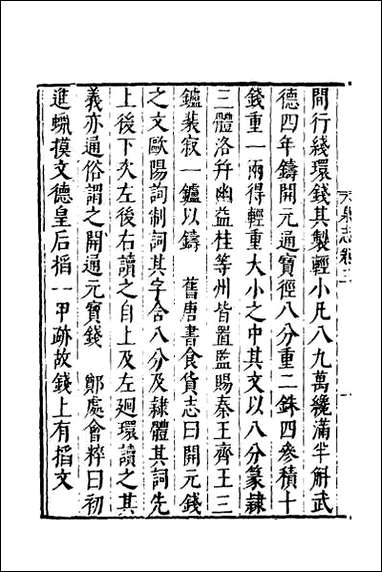 間行綫環錢其製輕小凡八九萬纔滿半斛武
德四年鑄開元通寶徑八分重二銖四參積十
錢重一兩得輕重大小之中其文以八分篆隸
三體洛幷幽益桂等州皆置監賜秦王齊王三
鑪裴寂一鑪以鑄　舊唐書食貨志曰開元錢
之文歐陽詢制詞其字含八分及隸體其詞先
上後下次左後右讀之自上及左廻環讀之其
義亦通俗謂之開通元寶錢　鄭處會粹曰初
進蠟摸文德皇后搯一甲跡故錢上有搯文
泉志卷三